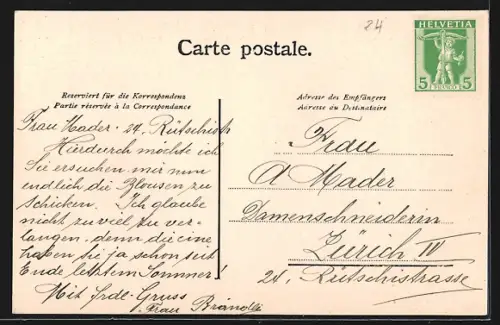 24
HELVETIA
5 FRANCO 5
Carte postale.
Reserviert für die Korrespondenz
Partie réservée à la Correspondance
Adresse des Empfängers
Adresse du Destinataire
Frau Mader - 24, Rütschistr
Hierdurch möchte ich
Sie ersuchen mir nun
endlich die Blousen zu
schicken. Ich glaube
nicht zu viel zu ver-
langen, denn die eine
haben Sie ja schon seit
Ende letztem Sommer!
Mit frdl. Gruss
Frau
Frau
A Mader
Damenschneiderin
Zürich IV
24. Rütschistrasse